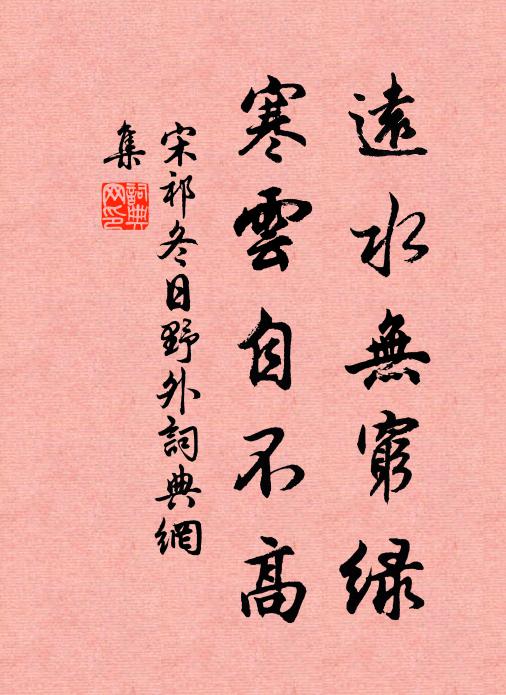 遠水無窮綠
寒雲自不高
宋祁冬日野外詞典網
集
詞典網印